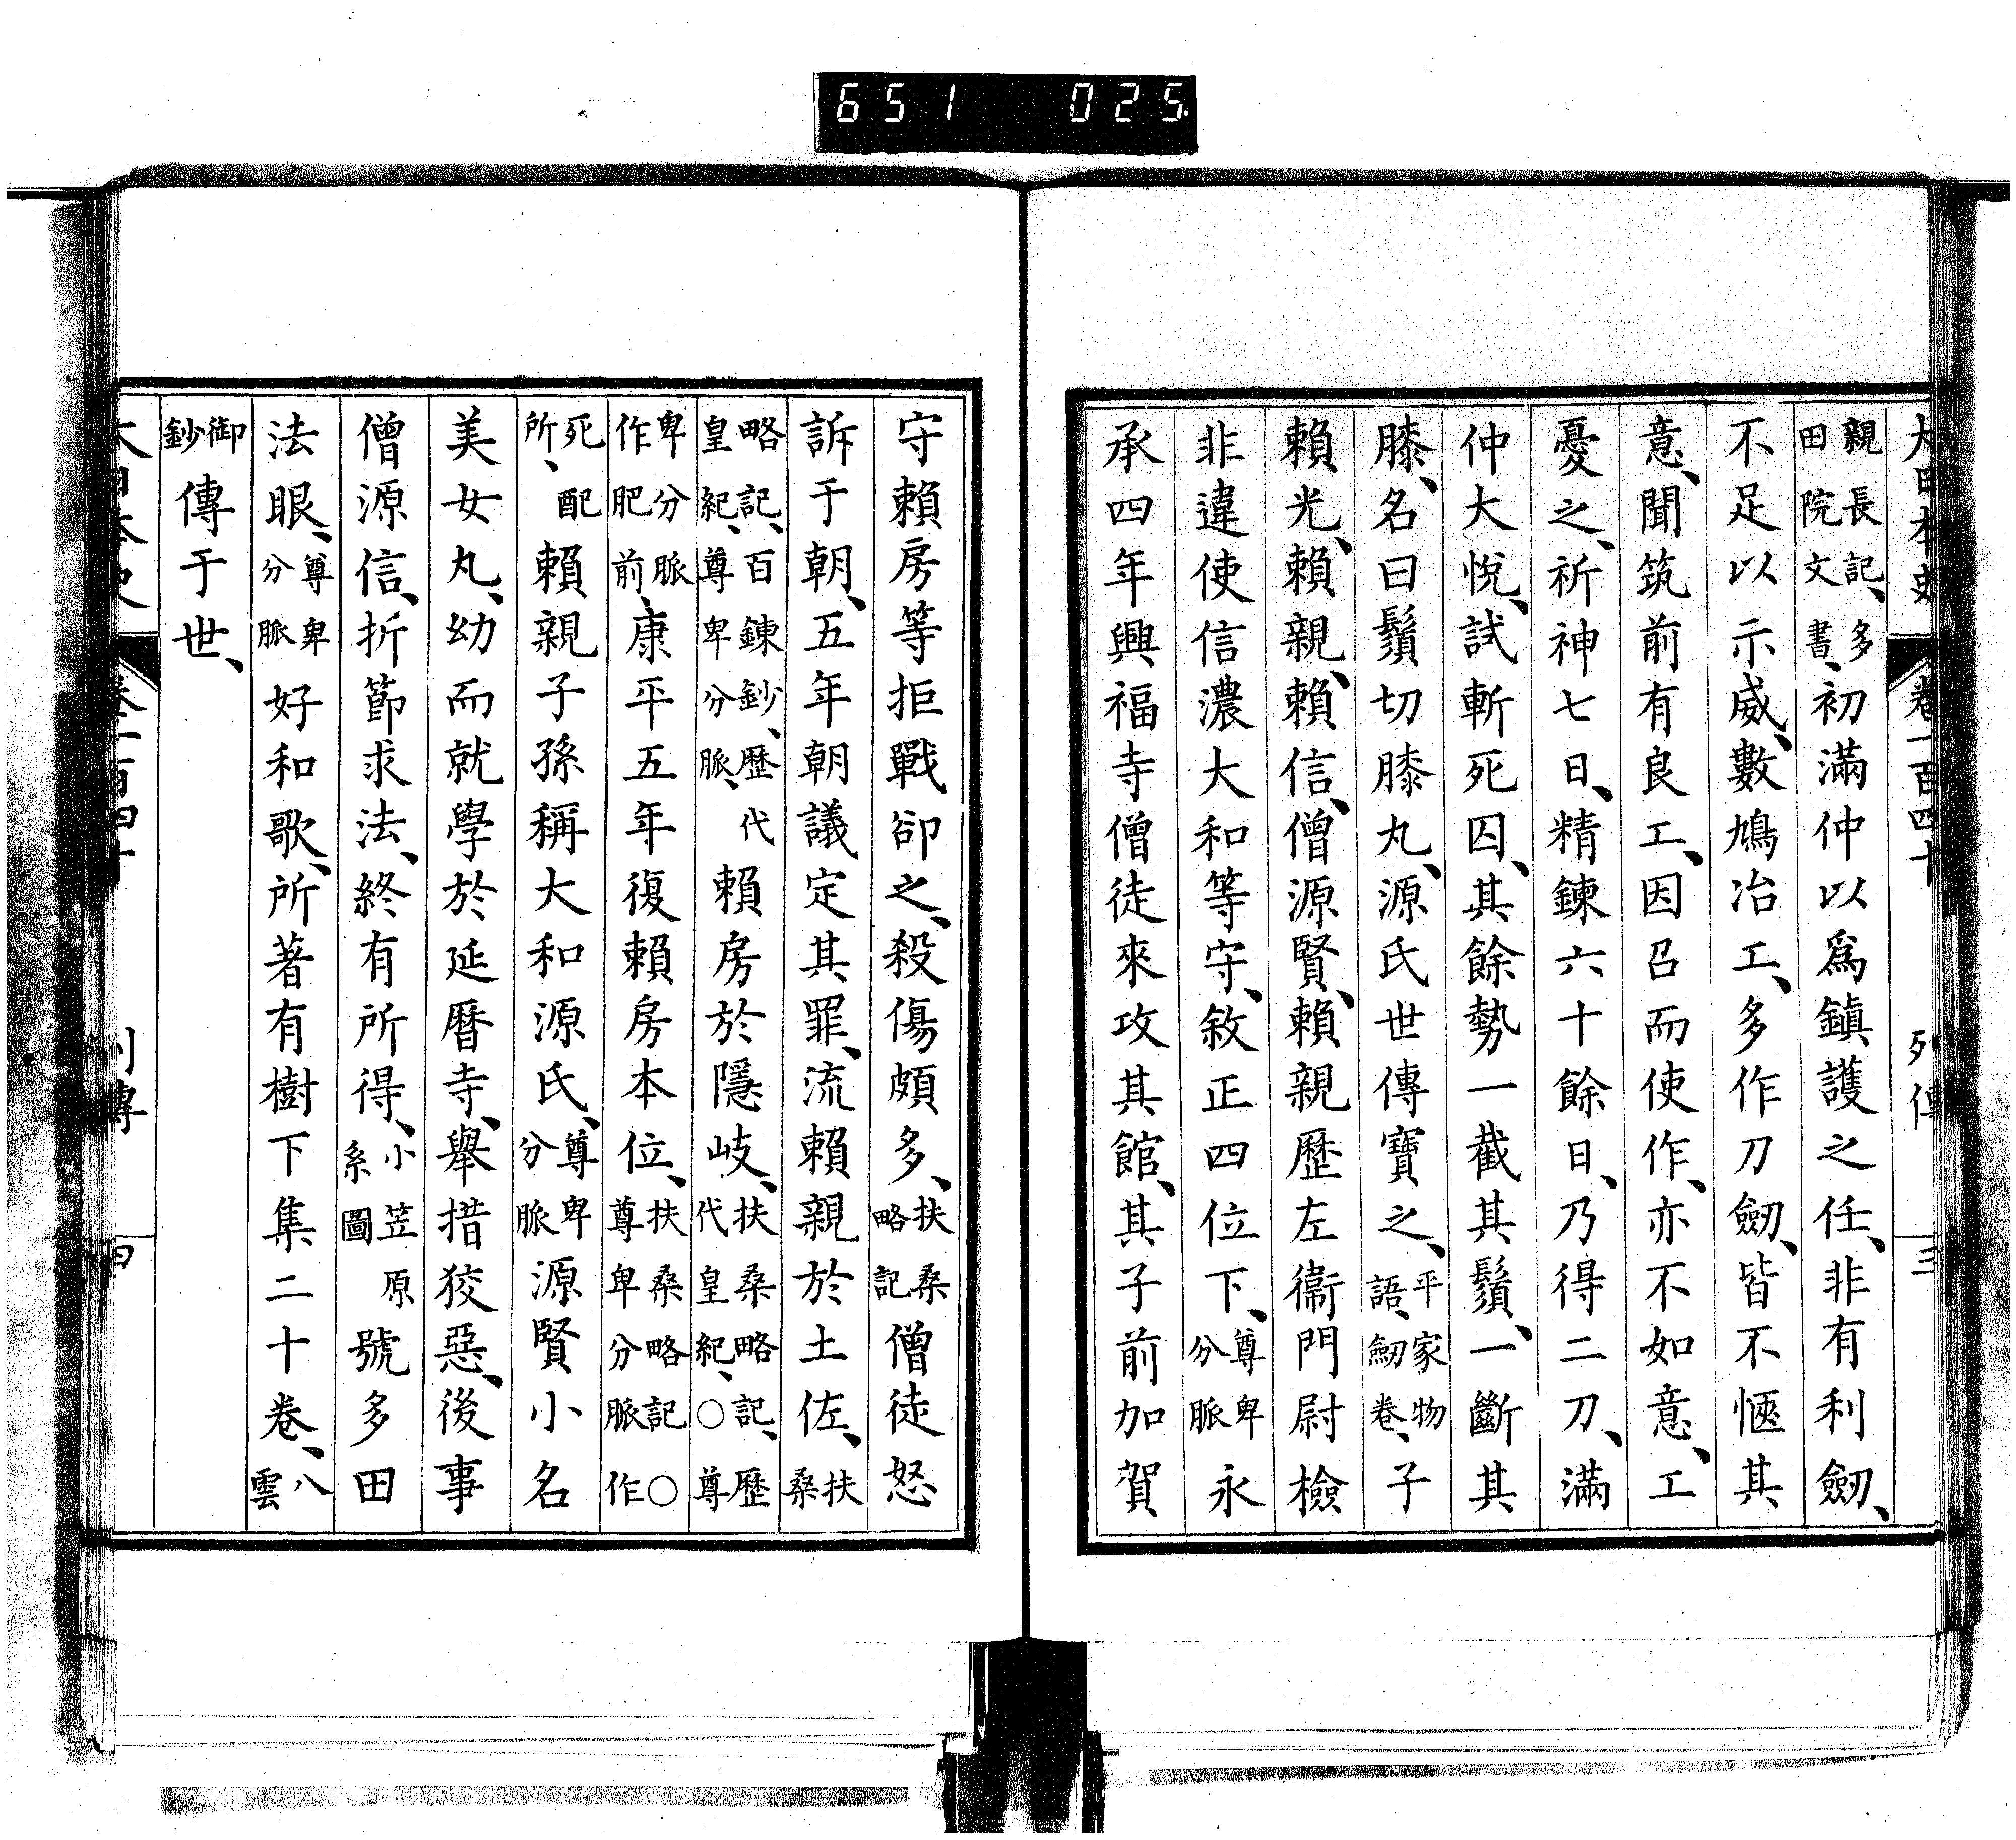 651 025
大日本史 卷一百四十 列傳 三
親長記、多田院文書、初滿仲以爲鎮護之任、非有利劒、
不足以示威、數鳩冶工、多作刀劒、皆不愜其
意、聞筑前有良工、因召而使作、亦不如意、工
憂之、祈神七日、精鍊六十餘日、乃得二刀、滿
仲大悅、試斬死囚、其餘勢一截其鬚、一斷其
膝、名曰鬚切膝丸、源氏世傳寶之、平家物語、劒卷、子
賴光、賴親、賴信、僧源賢、賴親歷左衞門尉檢
非違使信濃大和等守、敘正四位下、尊卑分脈永
承四年興福寺僧徒來攻其館、其子前加賀
守賴房等拒戰卻之、殺傷頗多、扶桑略記僧徒怒
訴于朝、五年朝議定其罪、流賴親於土佐、扶桑
略記、百鍊鈔、歷代皇紀、尊卑分脈、賴房於隱岐、扶桑略記、歷代皇紀、○尊
卑分脈作肥前、康平五年復賴房本位、扶桑略記○尊卑分脈作
死配所、賴親子孫稱大和源氏、尊卑分脈源賢小名
美女丸、幼而就學於延曆寺、舉措狡惡、後事
僧源信、折節求法、終有所得、小笠原系圖號多田
法眼、尊卑分脈好和歌、所著有樹下集二十卷、八雲
御鈔傳于世、
大日本史 卷一百四十 列傳 四